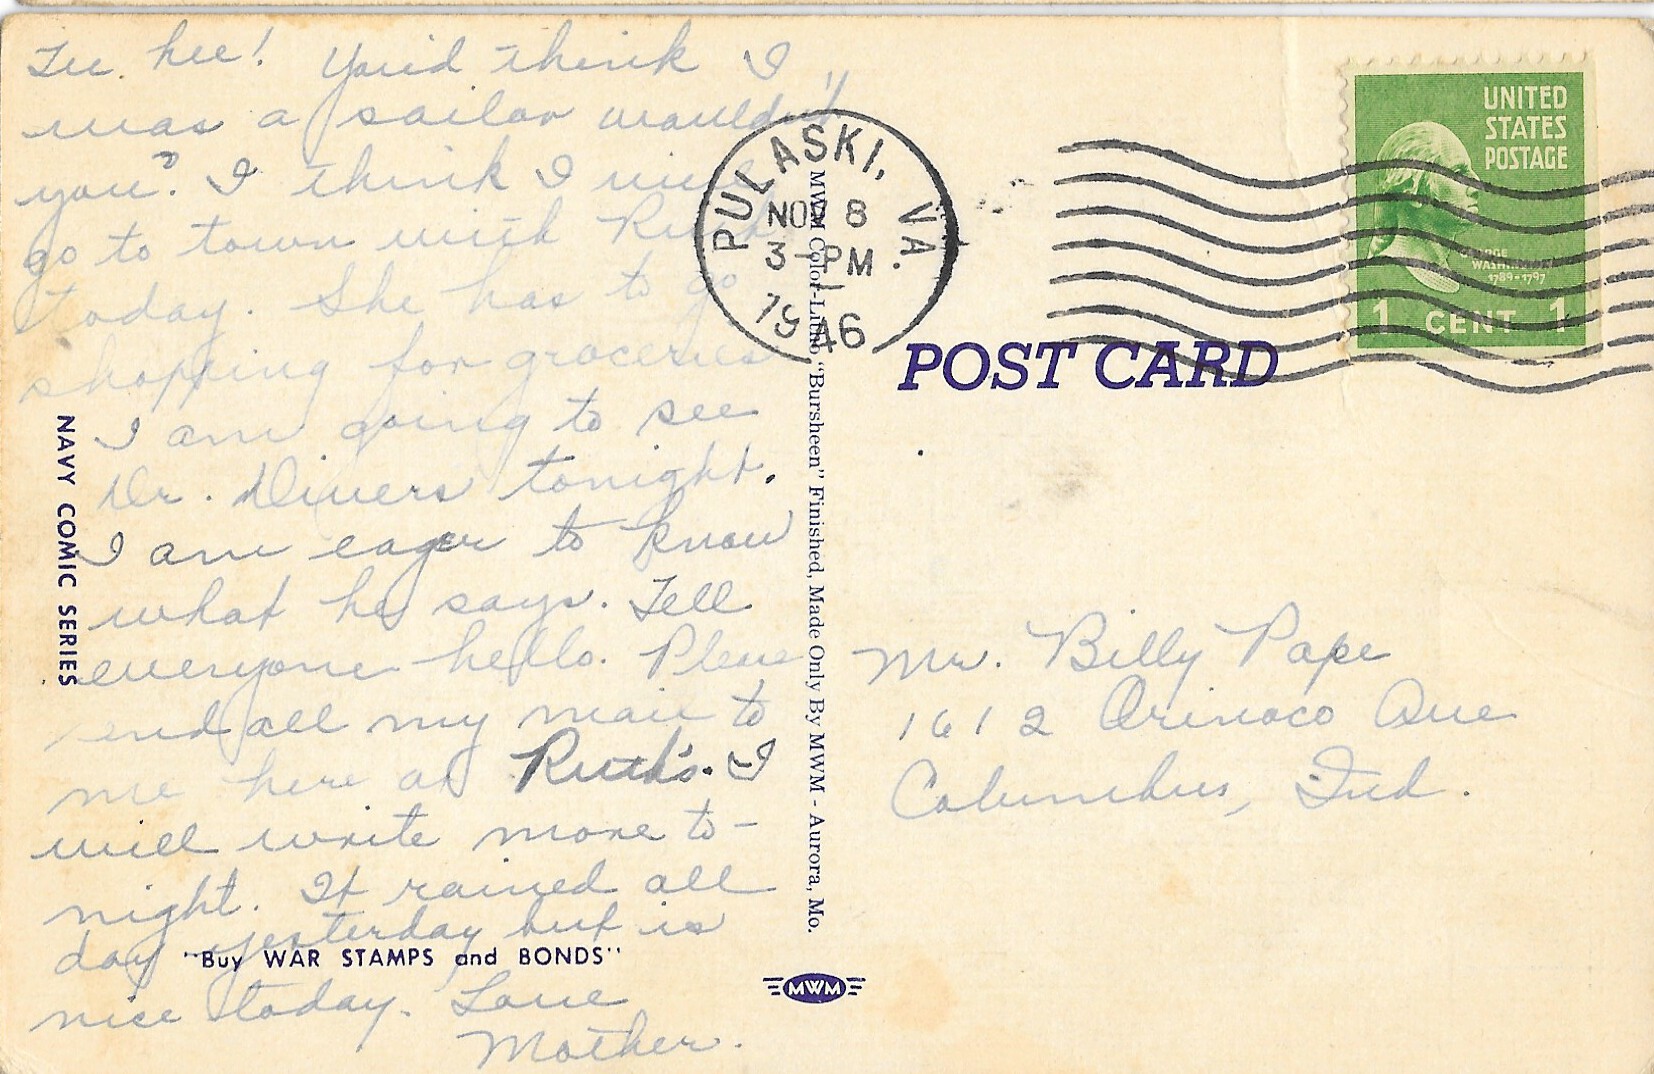 Tee hee! You'd think I
was a sailor wouldn't
you? I think I will
go to town with Ruth
today. She has to go
shopping for groceries
I am going to see
Dr. Divers tonight.
I am eager to know
what he says. Tell
everyone hello. Please
send all my mail to
me here at Ruth's. I
will write more to-
night. It rained all
day yesterday but is
nice today. Love
Mother.
NAVY COMIC SERIES
"Buy WAR STAMPS and BONDS"
MWM Color-Litho, "Bursheen" Finished, Made Only By MWM - Aurora, Mo.
MWM
PULASKI, VA.
NOV 8
3-PM
1946
UNITED
STATES
POSTAGE
GEORGE
WASHINGTON
1789-1797
1 CENT 1
POST CARD
Mr. Billy Pape
1612 Orinoco Ave
Columbus, Ind.